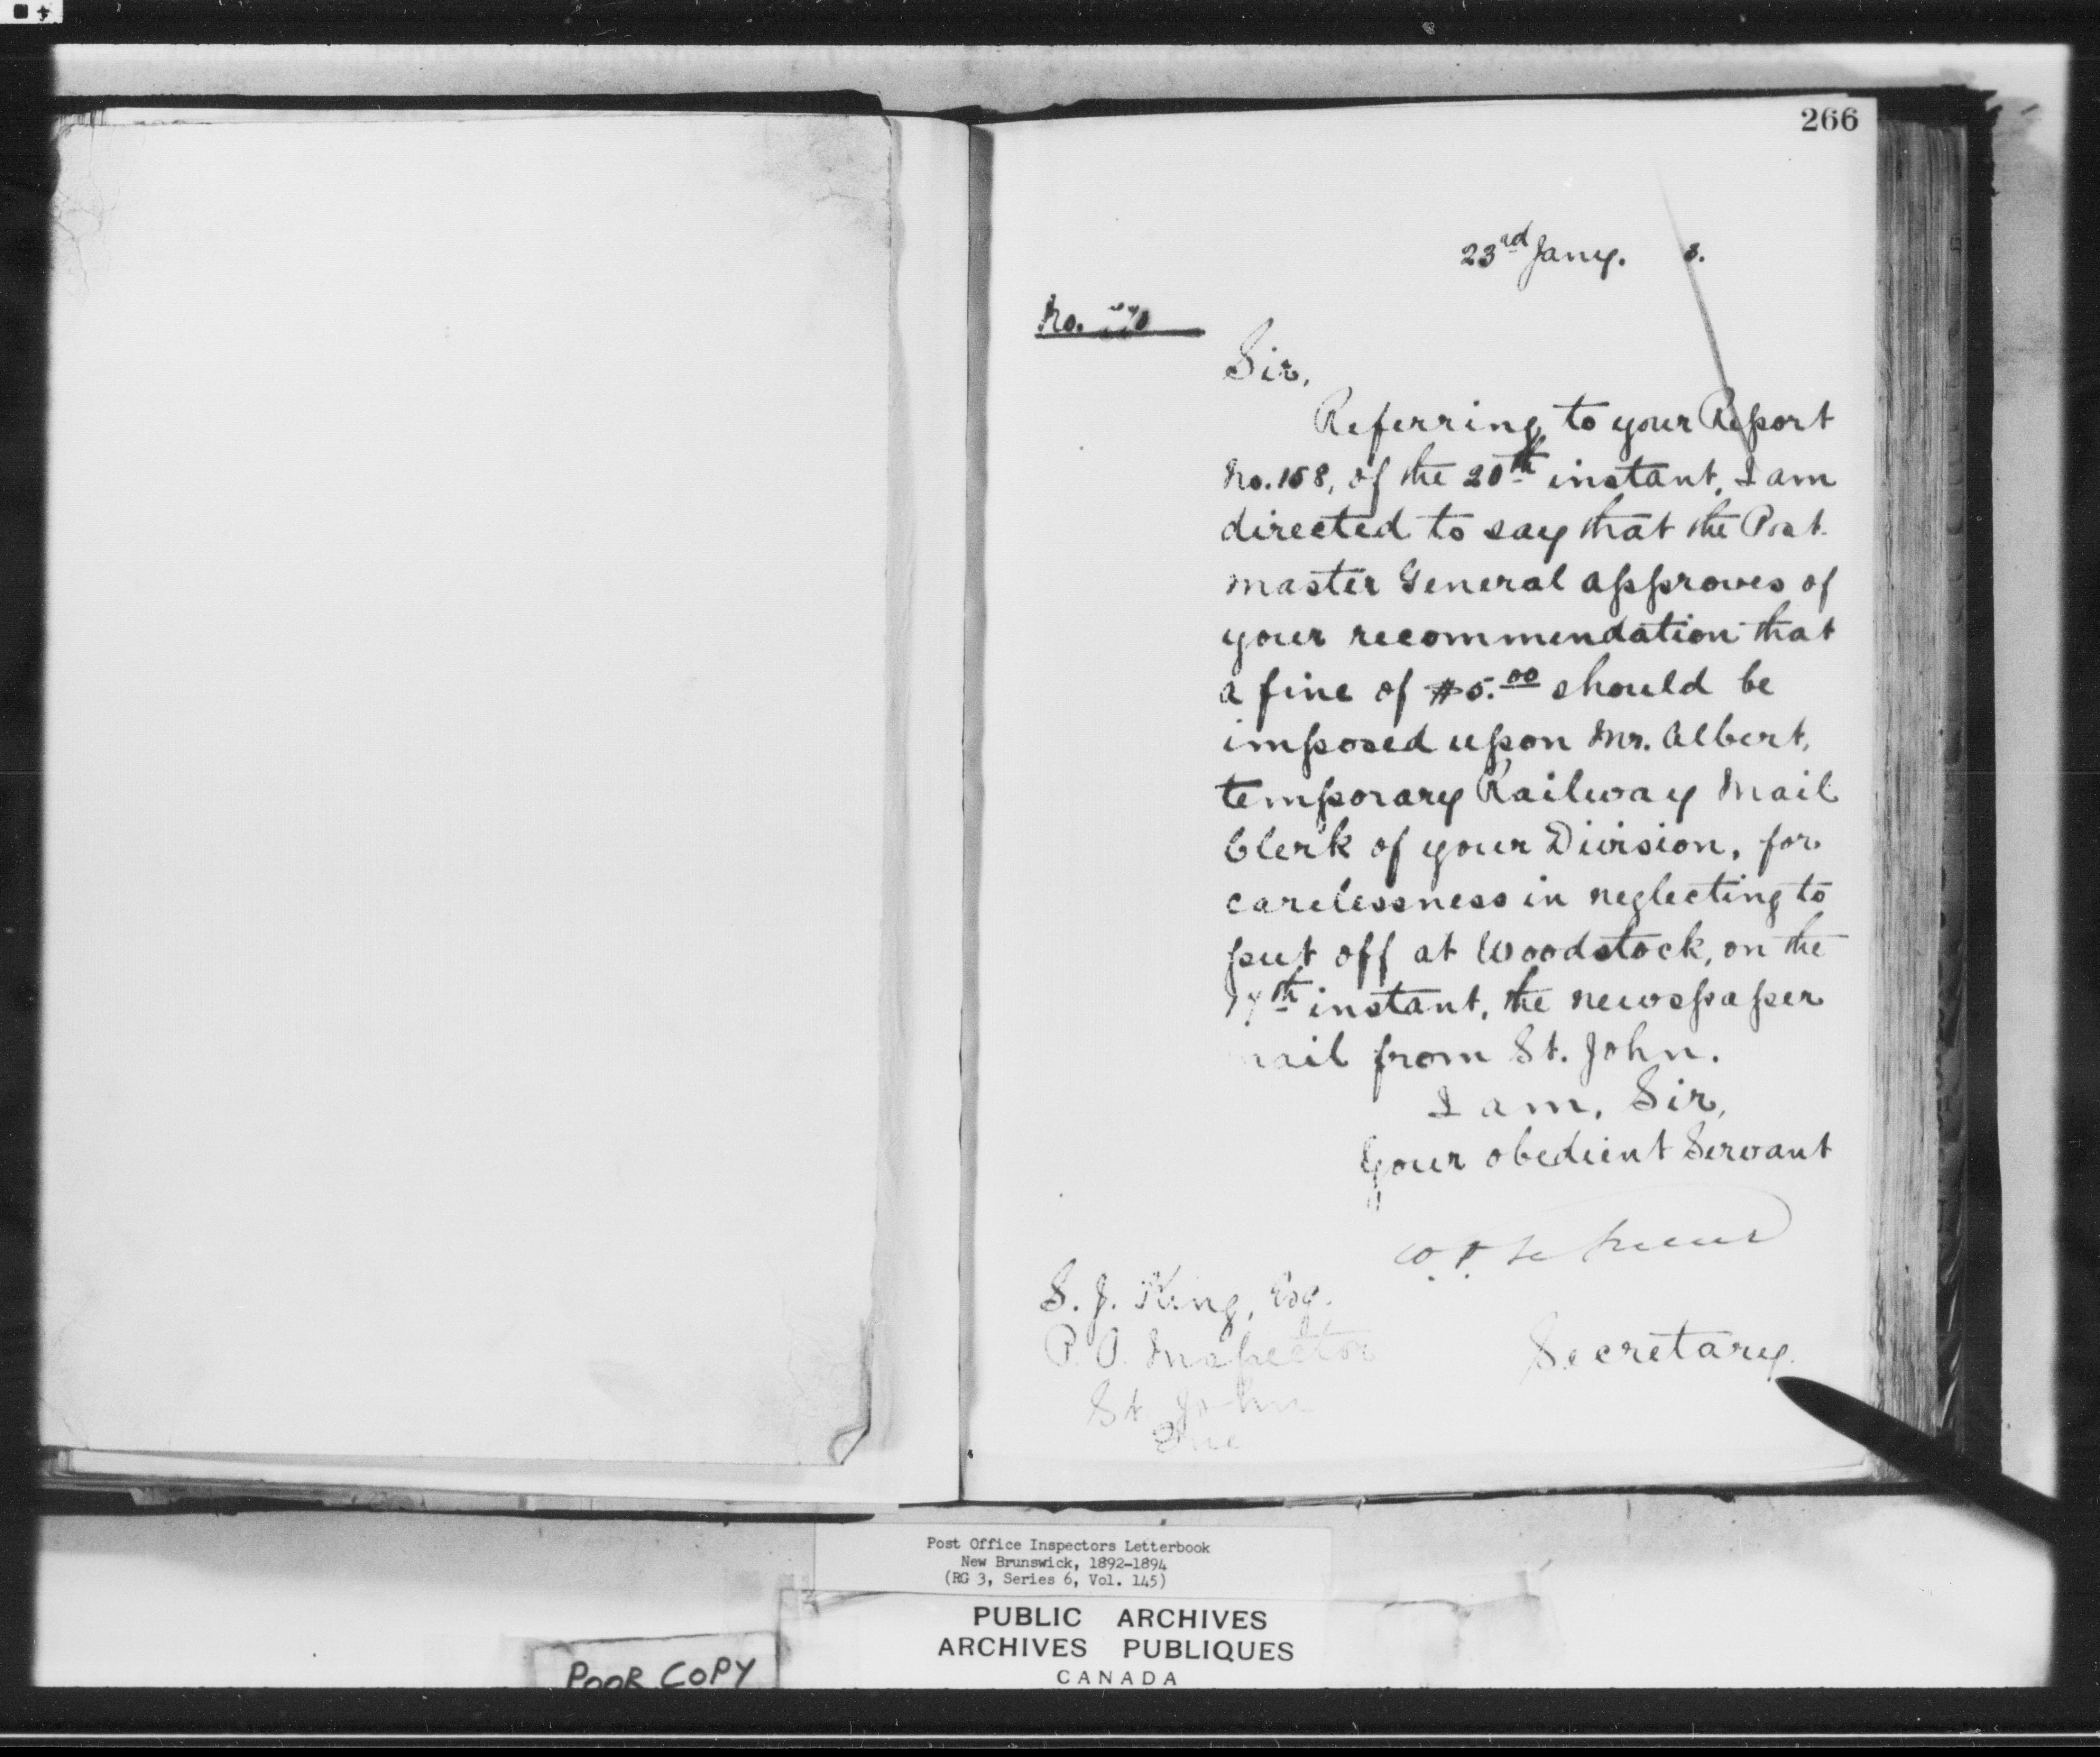 266
23rd Jany. 3.
No.
Sir,
Referring to your Report
No. 158, of the 20th instant, I am
directed to say that the Post
master General approves of
your recommendation that
a fine of $5.00 should be
imposed upon Mr. Albert,
temporary Railway Mail
Clerk of your Division, for
carelessness in neglecting to
put off at Woodstock, on the
17th instant, the newspaper
mail from St. John.
I am, Sir,
Your obedient Servant
Secretary.
S. J. King, Esq.
P. O. Inspector
St. John
Post Office Inspectors Letterbook
New Brunswick, 1892-1894
(RG 3, Series 6, Vol. 145)
PUBLIC ARCHIVES
ARCHIVES PUBLIQUES
CANADA
POOR COPY